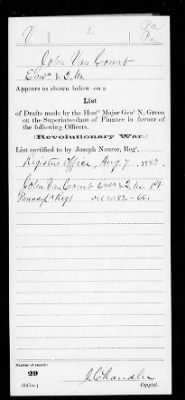 V 2 Pa
John Van Court
Ensn & Q. M.
Appears as shown below on a
List
of Drafts made by the Honble Major Genl N. Green
on the Superintendant of Finance in favour of
the following Officers.
Revolutionary War.
List certified to by Joseph Nourse, Regr.
Register Office, Aug 7, 1783.
John Van Court Ensn & Q M 1st
Pennsyla Regt
Number of record:
29
J. C. Handler
(545m) Copyist.